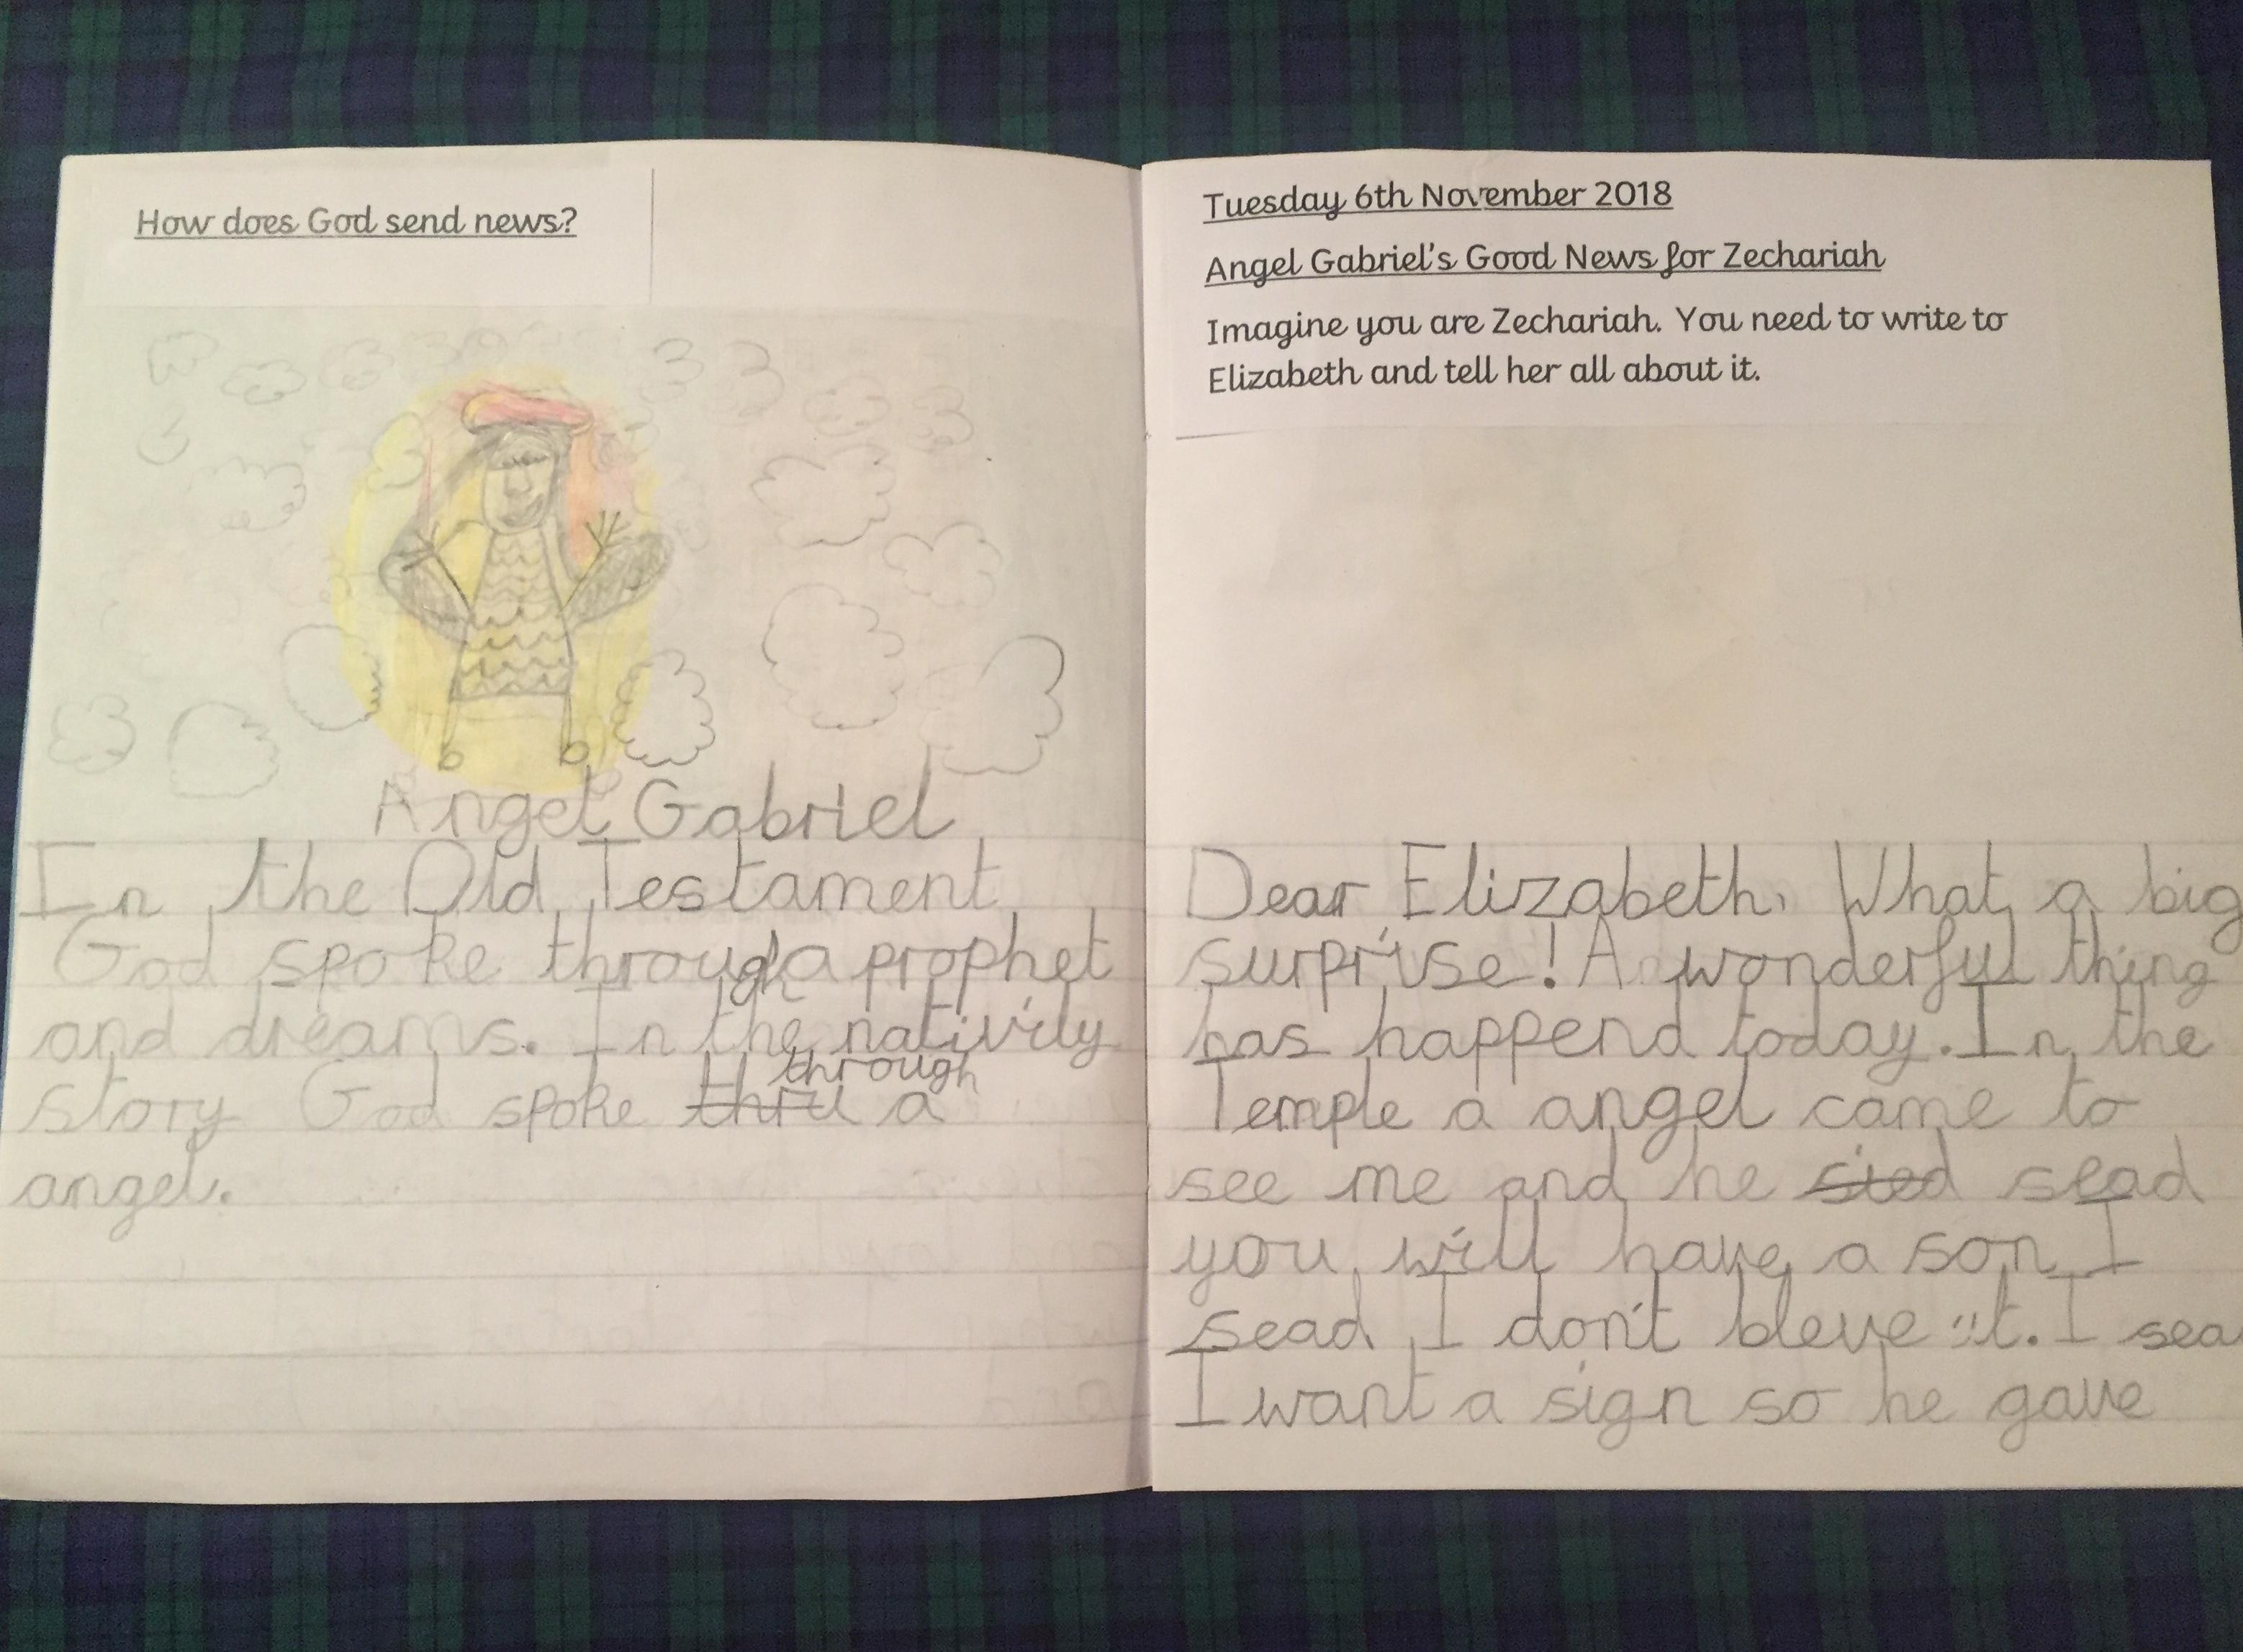 How does God send news?
Angel Gabriel
In the Old Testament
God spoke through a prophet
and dreams. In the nativity
through
story God spoke thru a
angel.
Tuesday 6th November 2018
Angel Gabriel's Good News for Zechariah
Imagine you are Zechariah. You need to write to
Elizabeth and tell her all about it.
Dear Elizabeth, What a big
surprise! A wonderful thing
has happend today. In the
Temple a angel came to
see me and he sied sead
you will have a son I
sead I don't bleve it. I sea
I want a sign so he gave